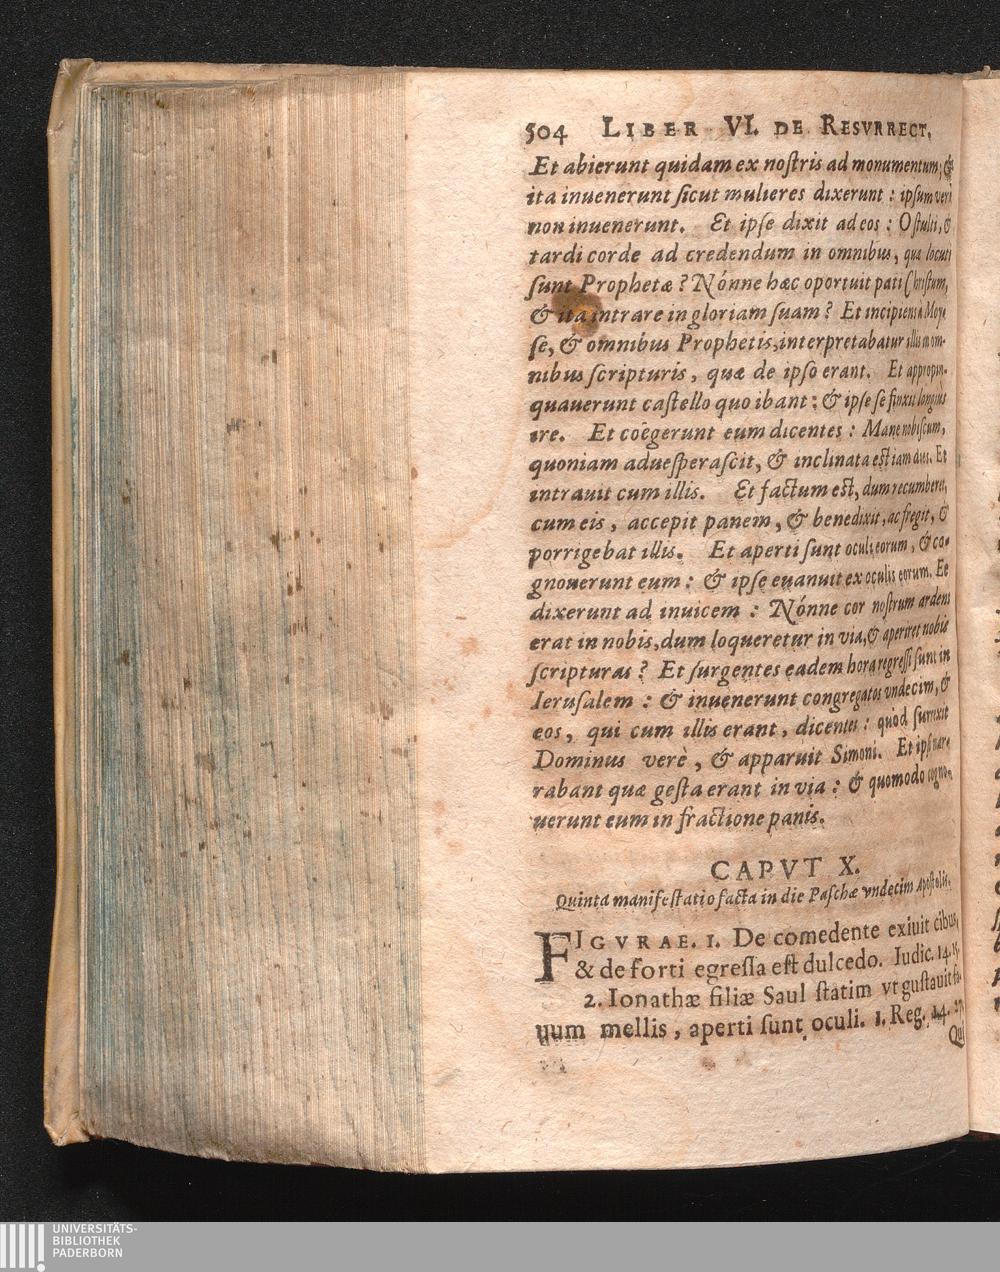 504 LIBER VI. DE RESVRRECT,
Et abierunt quidam ex noſtris ad monumentum; &
ita inuenerunt ſicut mulieres dixerunt : ipſum verò
non inuenerunt. Et ipſe dixit ad eos : O ſtulti, &
tardi corde ad credendum in omnibus, quæ locuti
ſunt Prophetæ? Nónne hæc oportuit pati Chriſtum,
& ita intrare in gloriam ſuam? Et incipiens à Moy-
ſe, & omnibus Prophetis, interpretabatur illis in om-
nibus ſcripturis, quæ de ipſo erant. Et appropin-
quauerunt caſtello quo ibant: & ipſe ſe finxit longiùs
ire. Et coëgerunt eum dicentes : Mane nobiſcum,
quoniam adueſperaſcit, & inclinata eſt iam dies. Et
intrauit cum illis. Et factum eſt, dum recumberet,
cum eis, accepit panem, & benedixit, ac fregit, &
porrigebat illis. Et aperti ſunt oculi eorum, & co-
gnouerunt eum: & ipſe euanuit ex oculis eorum. Et
dixerunt ad inuicem : Nónne cor noſtrum ardens
erat in nobis, dum loqueretur in via, & aperiret nobis
ſcripturas? Et ſurgentes eadem hora regreſſi ſunt in
Ieruſalem : & inuenerunt congregatos vndecim, &
eos, qui cum illis erant, dicentes : quòd ſurrexit
Dominus verè, & apparuit Simoni. Et ipſi nar-
rabant quæ geſta erant in via : & quomodo cogno-
uerunt eum in fractione panis.
CAPVT X.
Quinta manifeſtatio facta in die Paſchæ vndecim Apoſtolis.
FIGVRAE. 1. De comedente exiuit cibus,
& de forti egreſſa eſt dulcedo. Iudic. 14. 15.
2. Ionathæ filiæ Saul ſtatim vt guſtauit fa-
uum mellis, aperti ſunt oculi. 1. Reg. 14. 27.
Qui
UNIVERSITÄTS-
BIBLIOTHEK
PADERBORN